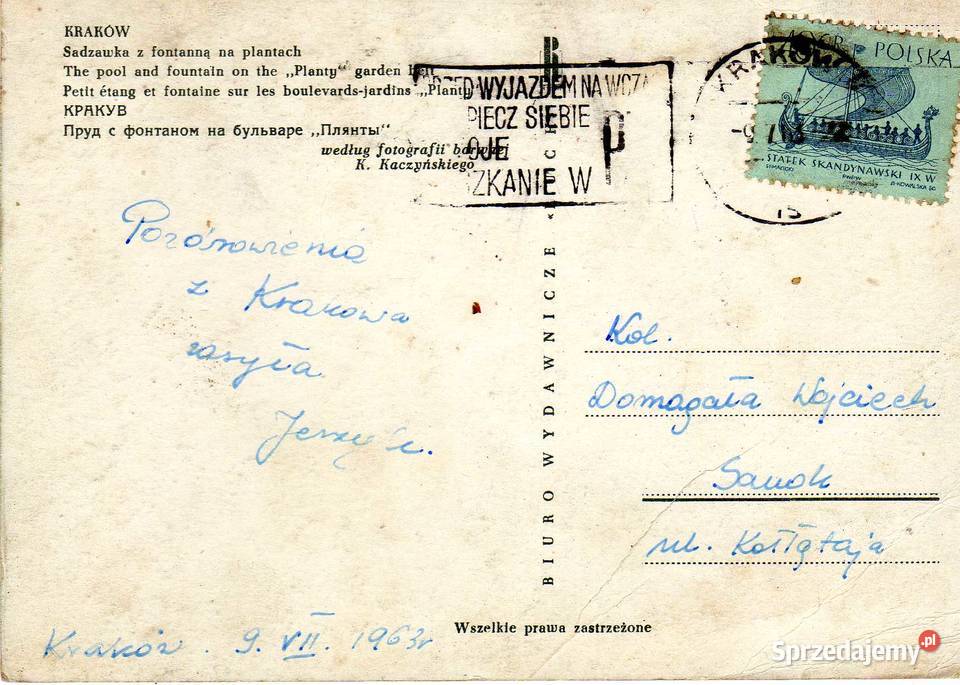 KRAKÓW
Sadzawka z fontanną na plantach
The pool and fountain on the „Planty” garden belt
Petit étang et fontaine sur les boulevards-jardins „Planty
КРАКУВ
Пруд с фонтаном на бульваре „Плянты”
według fotografii barwnej
K. Kaczyńskiego
WYJAZDEM NA WCZA
PIECZ SIEBIE
OJE
SZKANIE W P
KRAKÓW
15
40 GR POLSKA
STATEK SKANDYNAWSKI IX W
Pozdrowienia
z Krakowa
zasyła
Kraków. 9. VII. 1963r
BIURO WYDAWNICZE „RUCH”
Kol.
Domagała Wojciech
Sanok
ul. Kołłątaja
Wszelkie prawa zastrzeżone
Sprzedajemy.pl